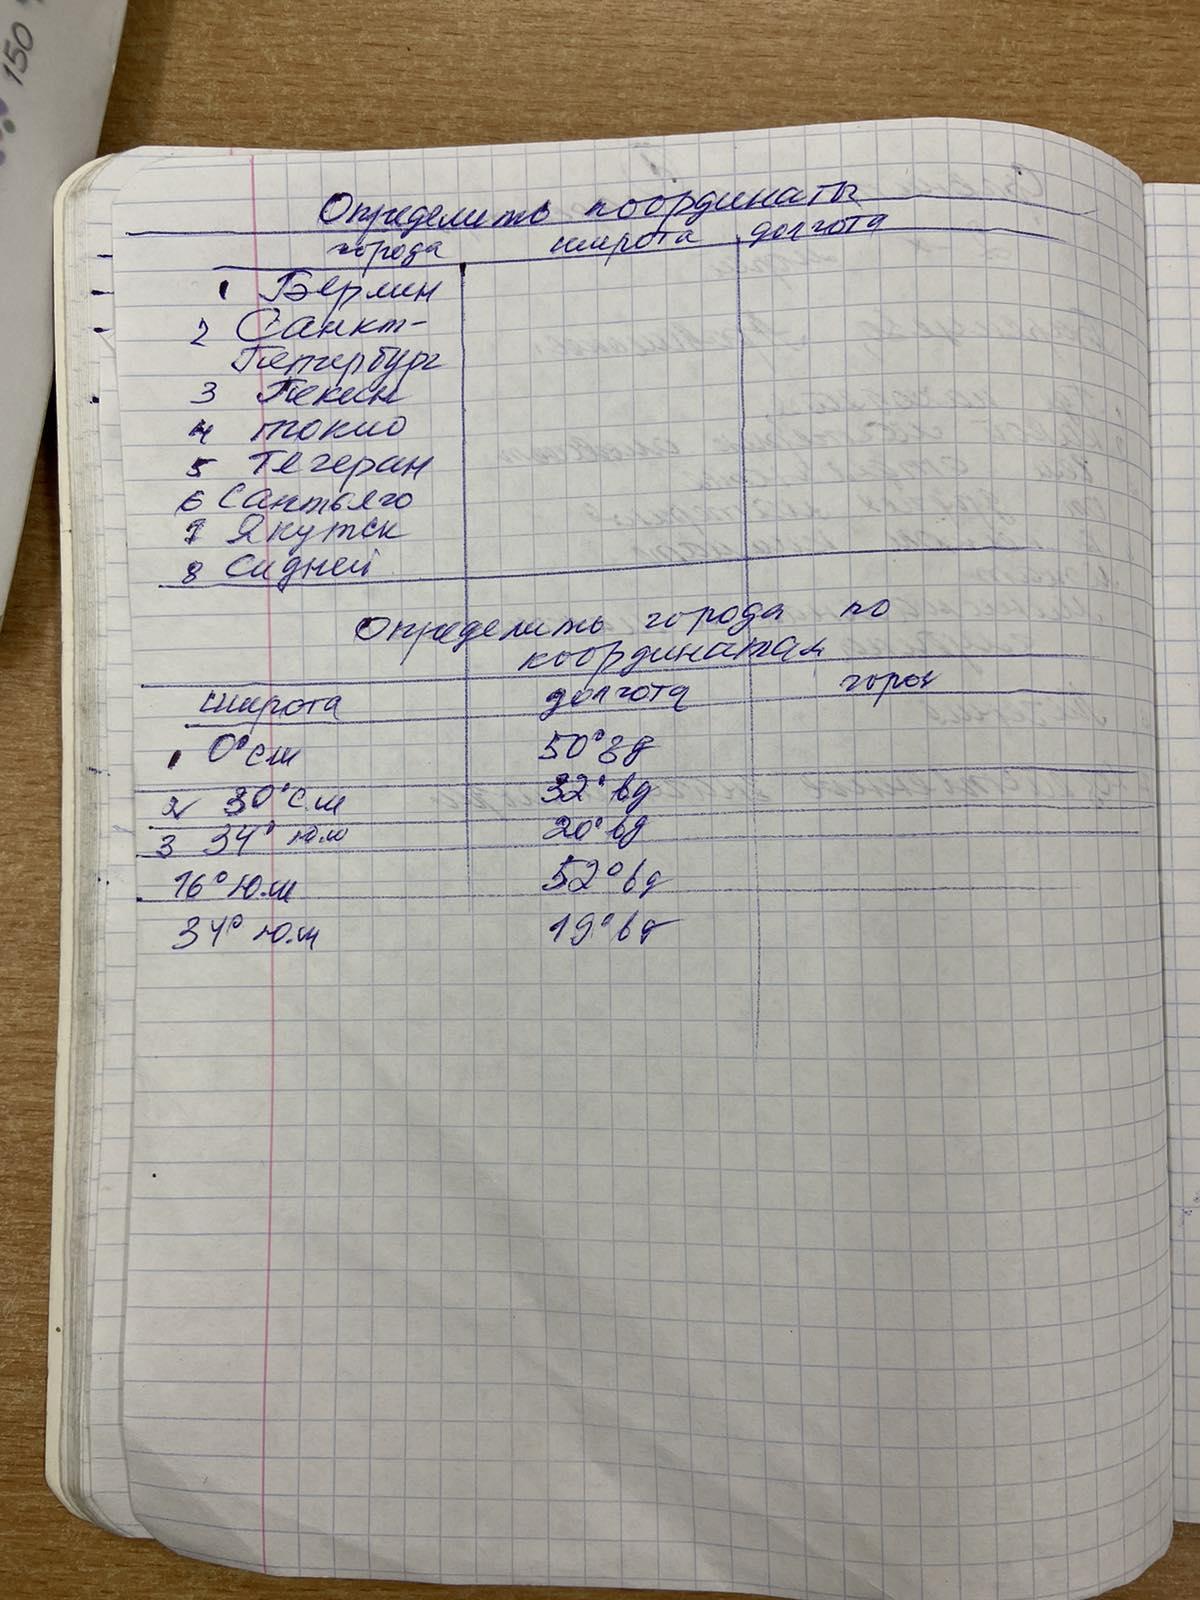 150
Определить координаты
города широта долгота
1 Берлин
2 Санкт-
Петербург
3 Пекин
4 токио
5 Тегеран
6 Сантьяго
7 Якутск
8 Сидней
Определить города по
координатам
широта долгота город
1 0°сш 50°зд
2 30°с.ш 32°вд
3 34° ю.ш 20°вд
16°ю.ш 52°вд
34° ю.ш 19°вд